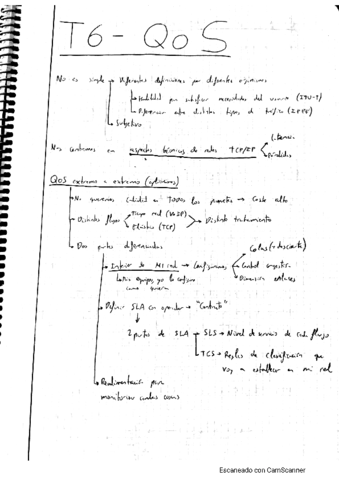 T6 - QoS
No es simple → Diferentes definiciones por diferentes organismos
→ Habilidad para satisfacer necesidades del usuario (ITU-T)
→ Diferenciar entre distintos tipos de tráfico (IETF)
→ Subjetivo
Nos centramos en aspectos técnicos de redes TCP/IP
→ Pérdidas
QoS extremo a extremo (aplicaciones)
→ No queremos calidad en TODOS los paquetes → Coste alto
→ Distintos flujos
Tiempo real (VoIP)
Elástico (TCP)
→ Distinto tratamiento
→ Dos partes diferenciadas
→ Interior de MI red → Configuramos
Colas (+ descarte)
Control congestión
Dimensión enlaces
como quiera
→ Definir SLA con operador → "Contrato"
2 partes de SLA → SLS → Nivel de servicio de cada flujo
→ TCS → Reglas de clasificación que
voy a establecer en mi red
→ Realimentación para
monitorizar
Escaneado con CamScanner